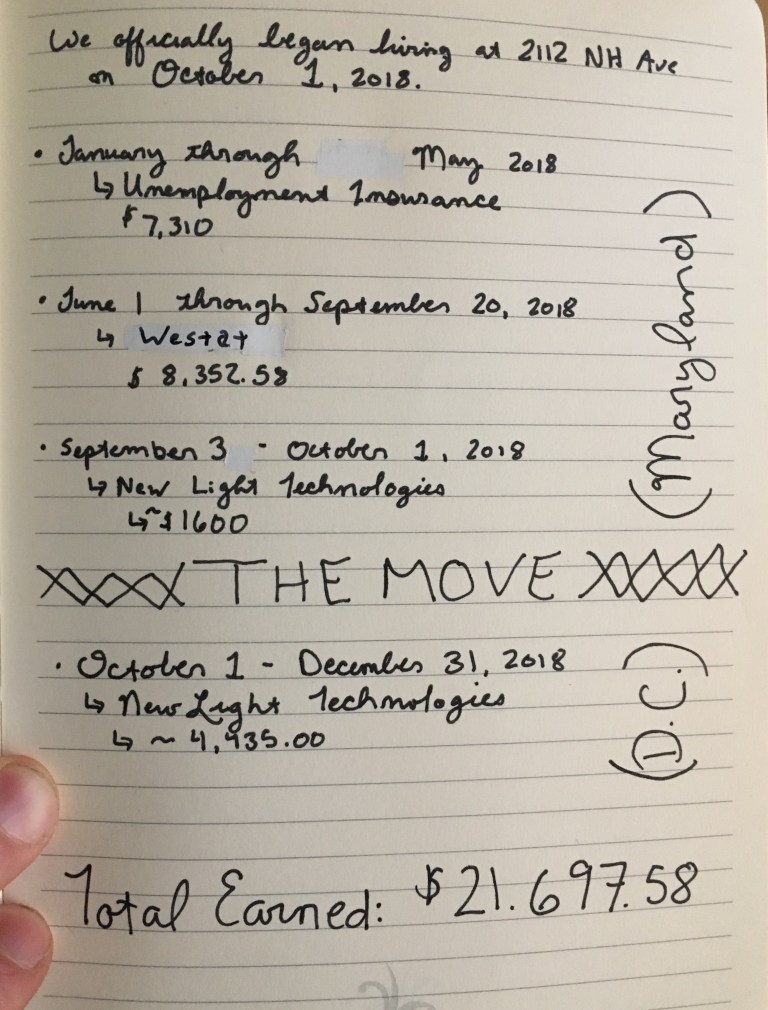 We officially began living at 2112 NH Ave
on October 1, 2018.
• January through May 2018
↳ Unemployment Insurance
$7,310
• June 1 through September 20, 2018
↳ Westat
$ 8,352.58
• September 3 - October 1, 2018
↳ New Light Technologies
↳ ~$1600
(Maryland)
XXXX THE MOVE XXXXX
• October 1 - December 31, 2018
↳ New Light Technologies
↳ ~ 4,435.00
(D.C.)
Total Earned: $21.697.58